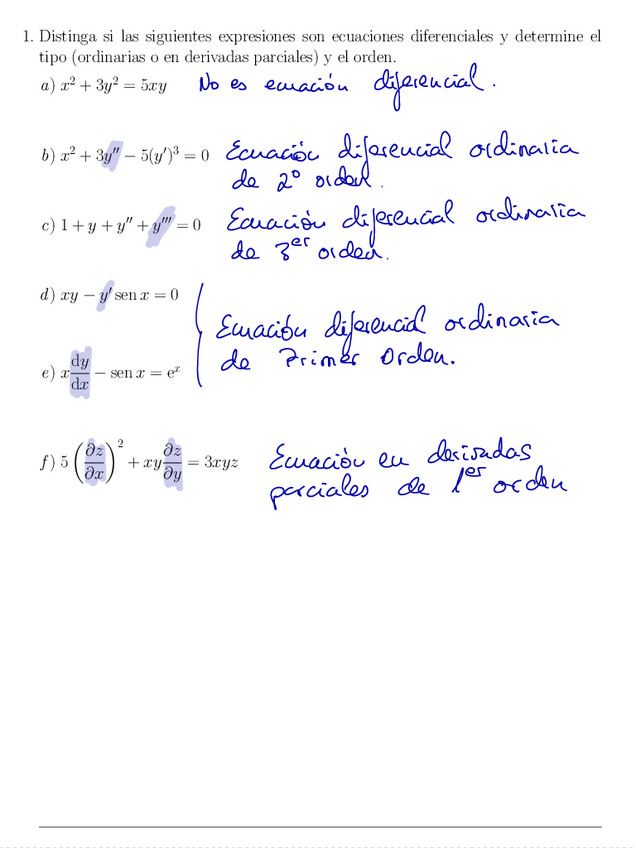 1. Distinga si las siguientes expresiones son ecuaciones diferenciales y determine el
tipo (ordinarias o en derivadas parciales) y el orden.
a) x² + 3y² = 5xy No es ecuación diferencial.
b) x² + 3y″ − 5(y′)³ = 0 Ecuación diferencial ordinaria
de 2º orden.
c) 1 + y + y″ + y‴ = 0 Ecuación diferencial ordinaria
de 3er orden.
d) xy − y′ sen x = 0
Ecuación diferencial ordinaria
de Primer Orden.
e) x dy/dx − sen x = eˣ
f) 5 (∂z/∂x)² + xy ∂z/∂y = 3xyz Ecuación en derivadas
parciales de 1er orden